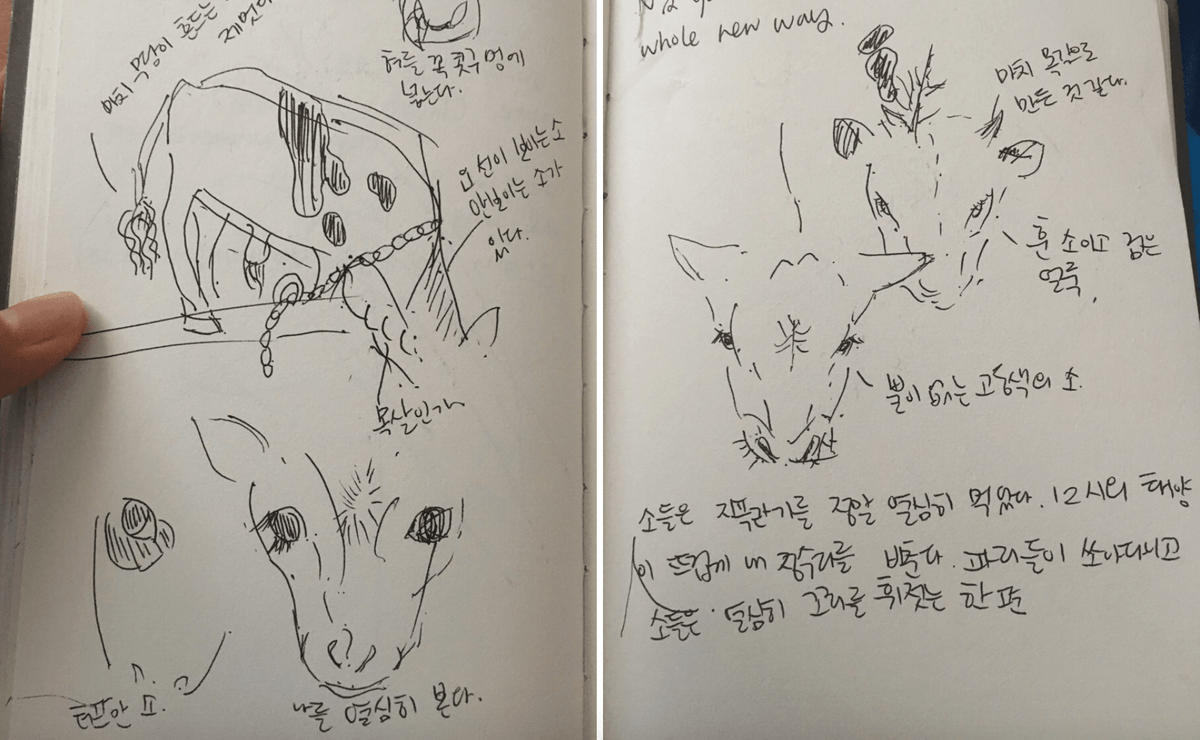 마치 무당이 흔드는
제멋대
혀를 꼭 콧구멍에
넣는다.
요 선이 보이는 소
안보이는 소가
있다.
목살인가
터프한 소.
나를 열심히 본다.
whole new way.
마치 목각으로
만든 것 같다.
흰 소이고 검은
얼룩.
뿔이 없는 고동색의 소.
소들은 지푸라기를 정말 열심히 먹었다. 12시의 태양
이 뜨겁게 내 정수리를 비춘다. 파리들이 쏘아다니고
소들은 열심히 꼬리를 휘젓는 한편